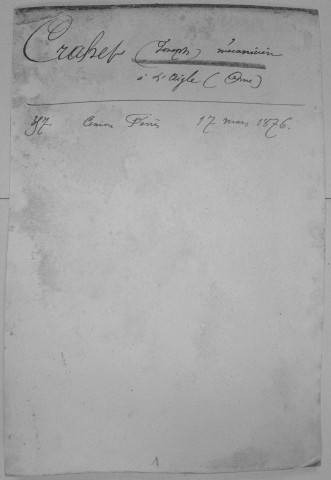 Crapet (Joseph) mécanicien
à L'Aigle (Orne)
37 17 mars 1876.
1